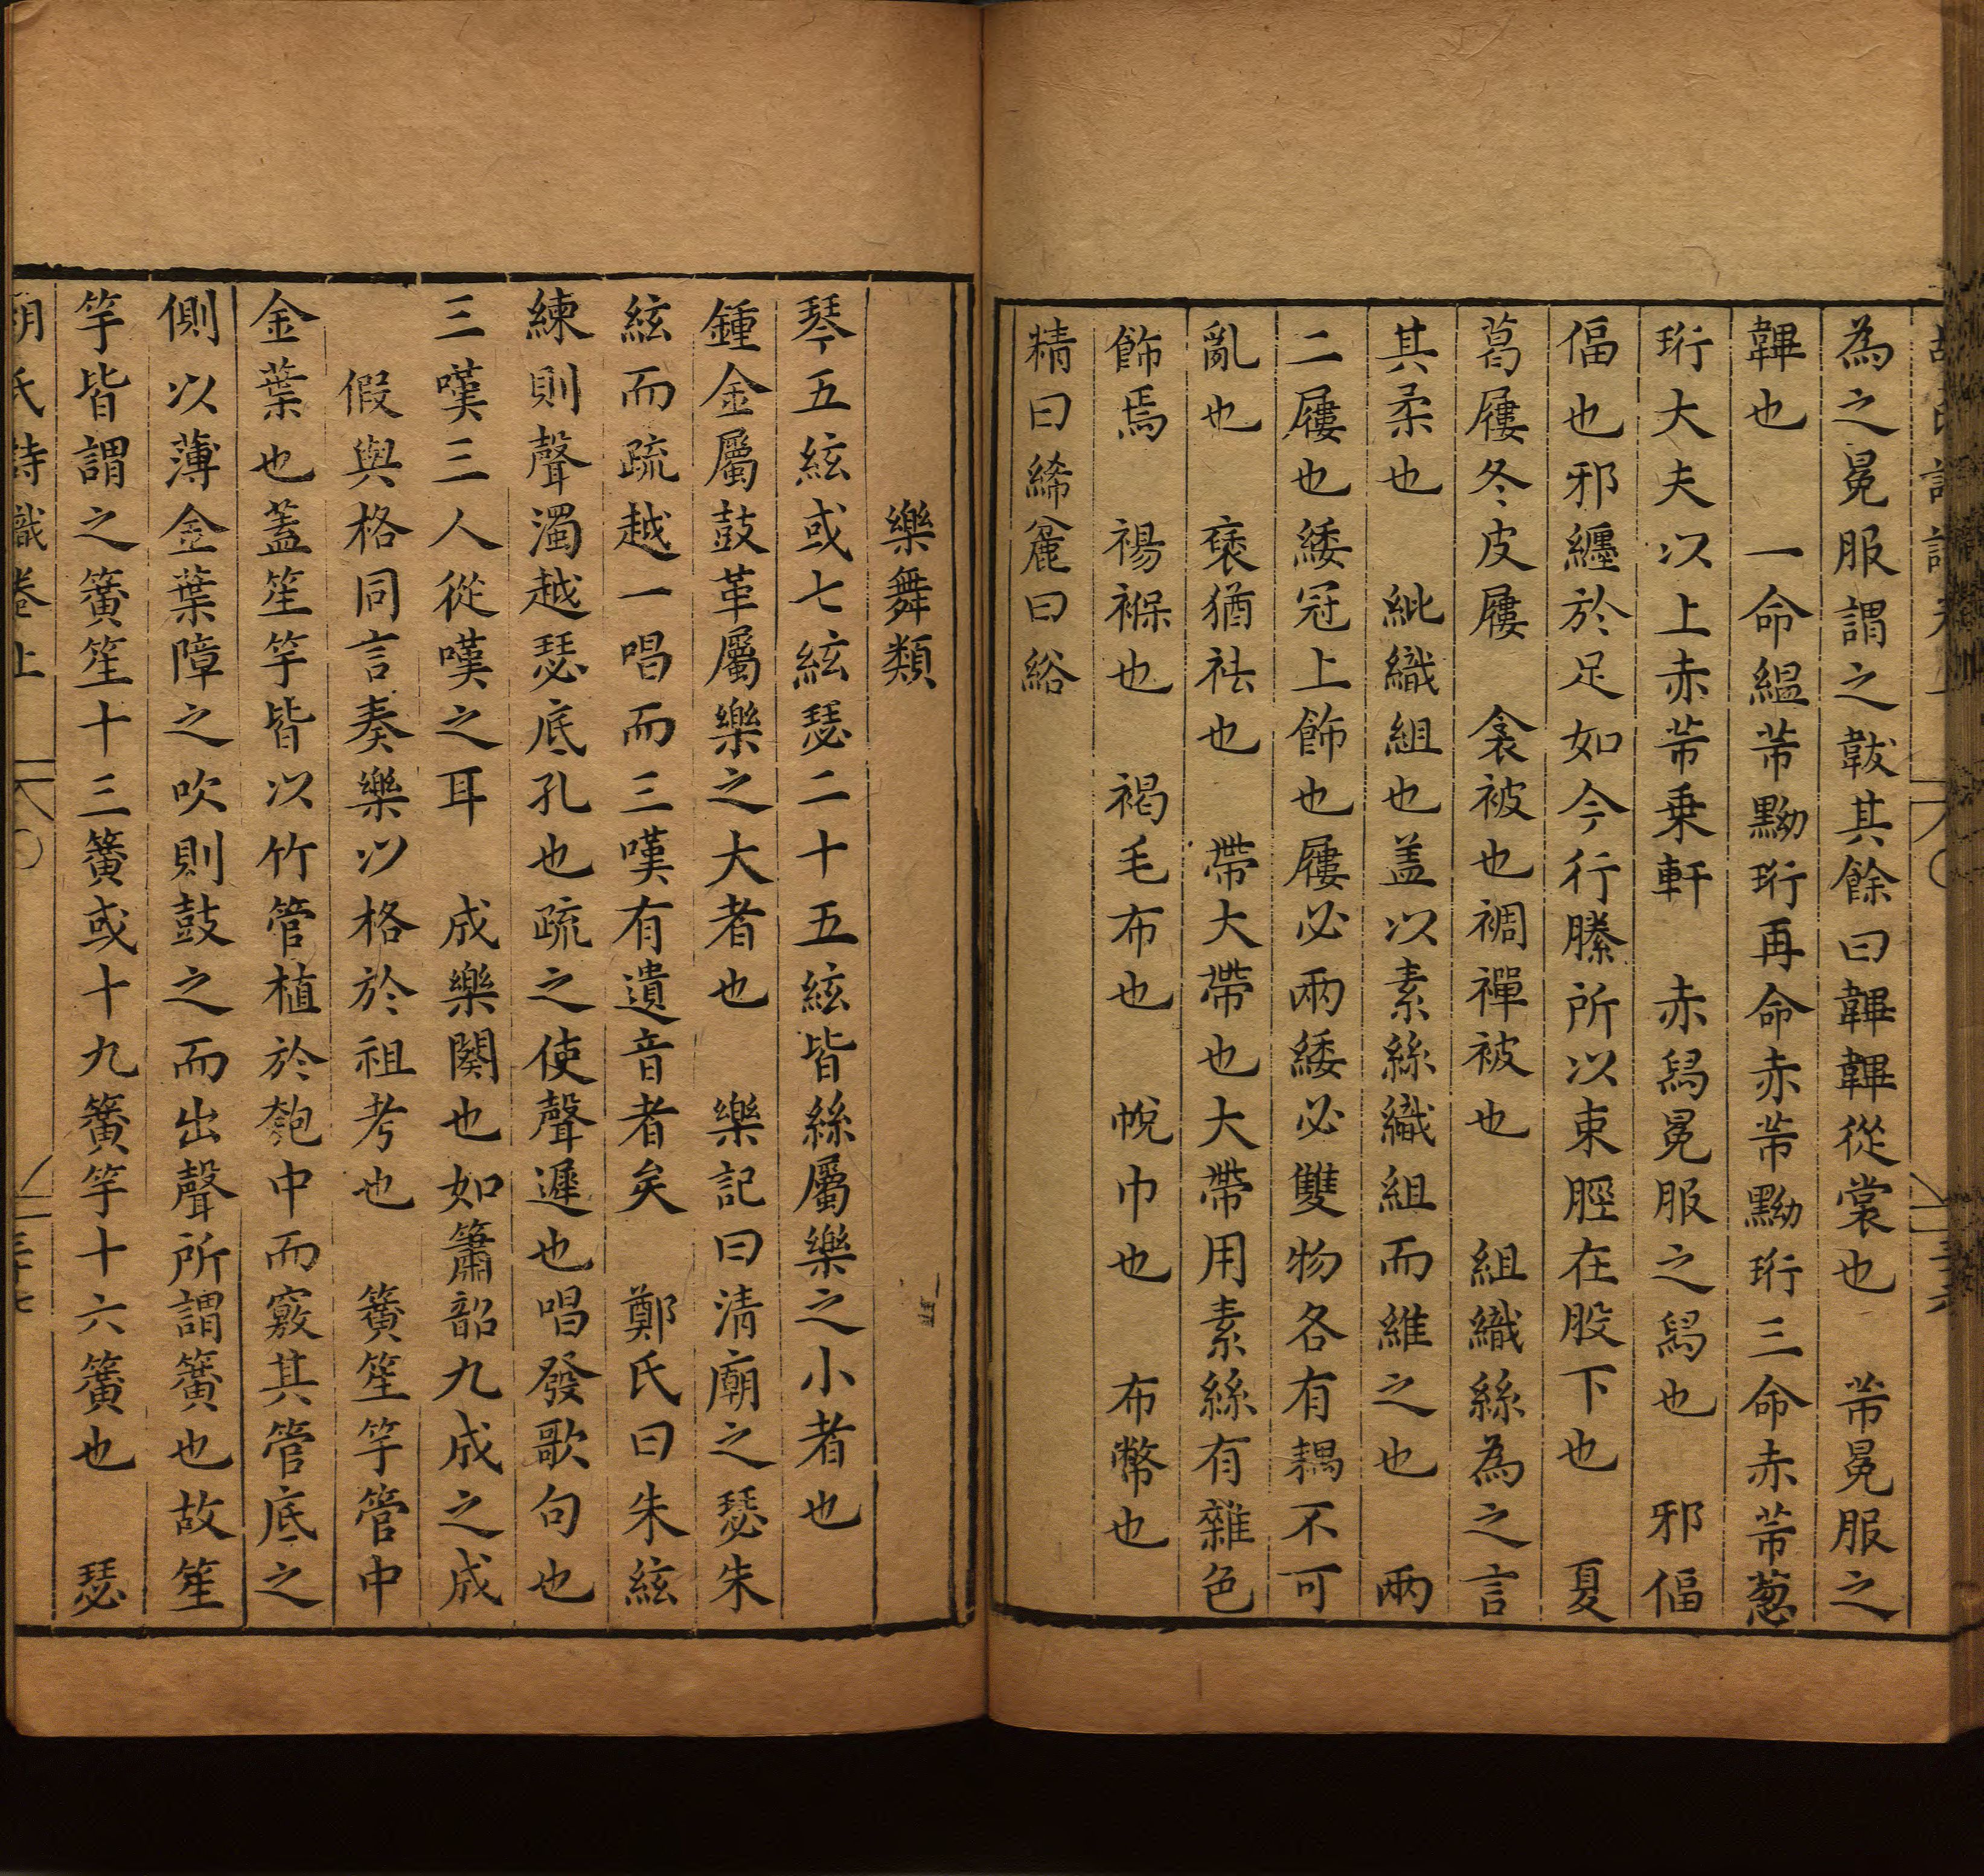 為之冕服謂之韍其餘曰韠韠從裳也　芾冕服之
韠也　一命縕芾黝珩再命赤芾黝珩三命赤芾葱
珩大夫以上赤芾乗軒　赤舄冕服之舄也　邪偪
偪也邪纏於足如今行縢所以束脛在股下也　夏
葛屨冬皮屨　衾被也裯襌被也　組織絲為之言
其柔也　紕織組也盖以素絲織組而維之也　兩
二屨也緌冠上飾也屨必兩緌必雙物各有耦不可
亂也　褎猶袪也　帶大帶也大帶用素絲有雜色
飾焉　裼褓也　褐毛布也　帨巾也　布幣也
精曰絺麄曰綌
樂舞類
琴五絃或七絃瑟二十五絃皆絲屬樂之小者也
鍾金屬鼓革屬樂之大者也　樂記曰清廟之瑟朱
絃而疏越一唱而三嘆有遺音者矣　鄭氏曰朱絃
練則聲濁越瑟底孔也疏之使聲遲也唱發歌句也
三嘆三人從嘆之耳　成樂闋也如簫韶九成之成
假與格同言奏樂以格於祖考也　簧笙竽管中
金葉也蓋笙竽皆以竹管植於匏中而竅其管底之
側以薄金葉障之吹則鼓之而出聲所謂簧也故笙
竽皆謂之簧笙十三簧或十九簧竽十六簧也　瑟
胡氏詩識卷上　三十七